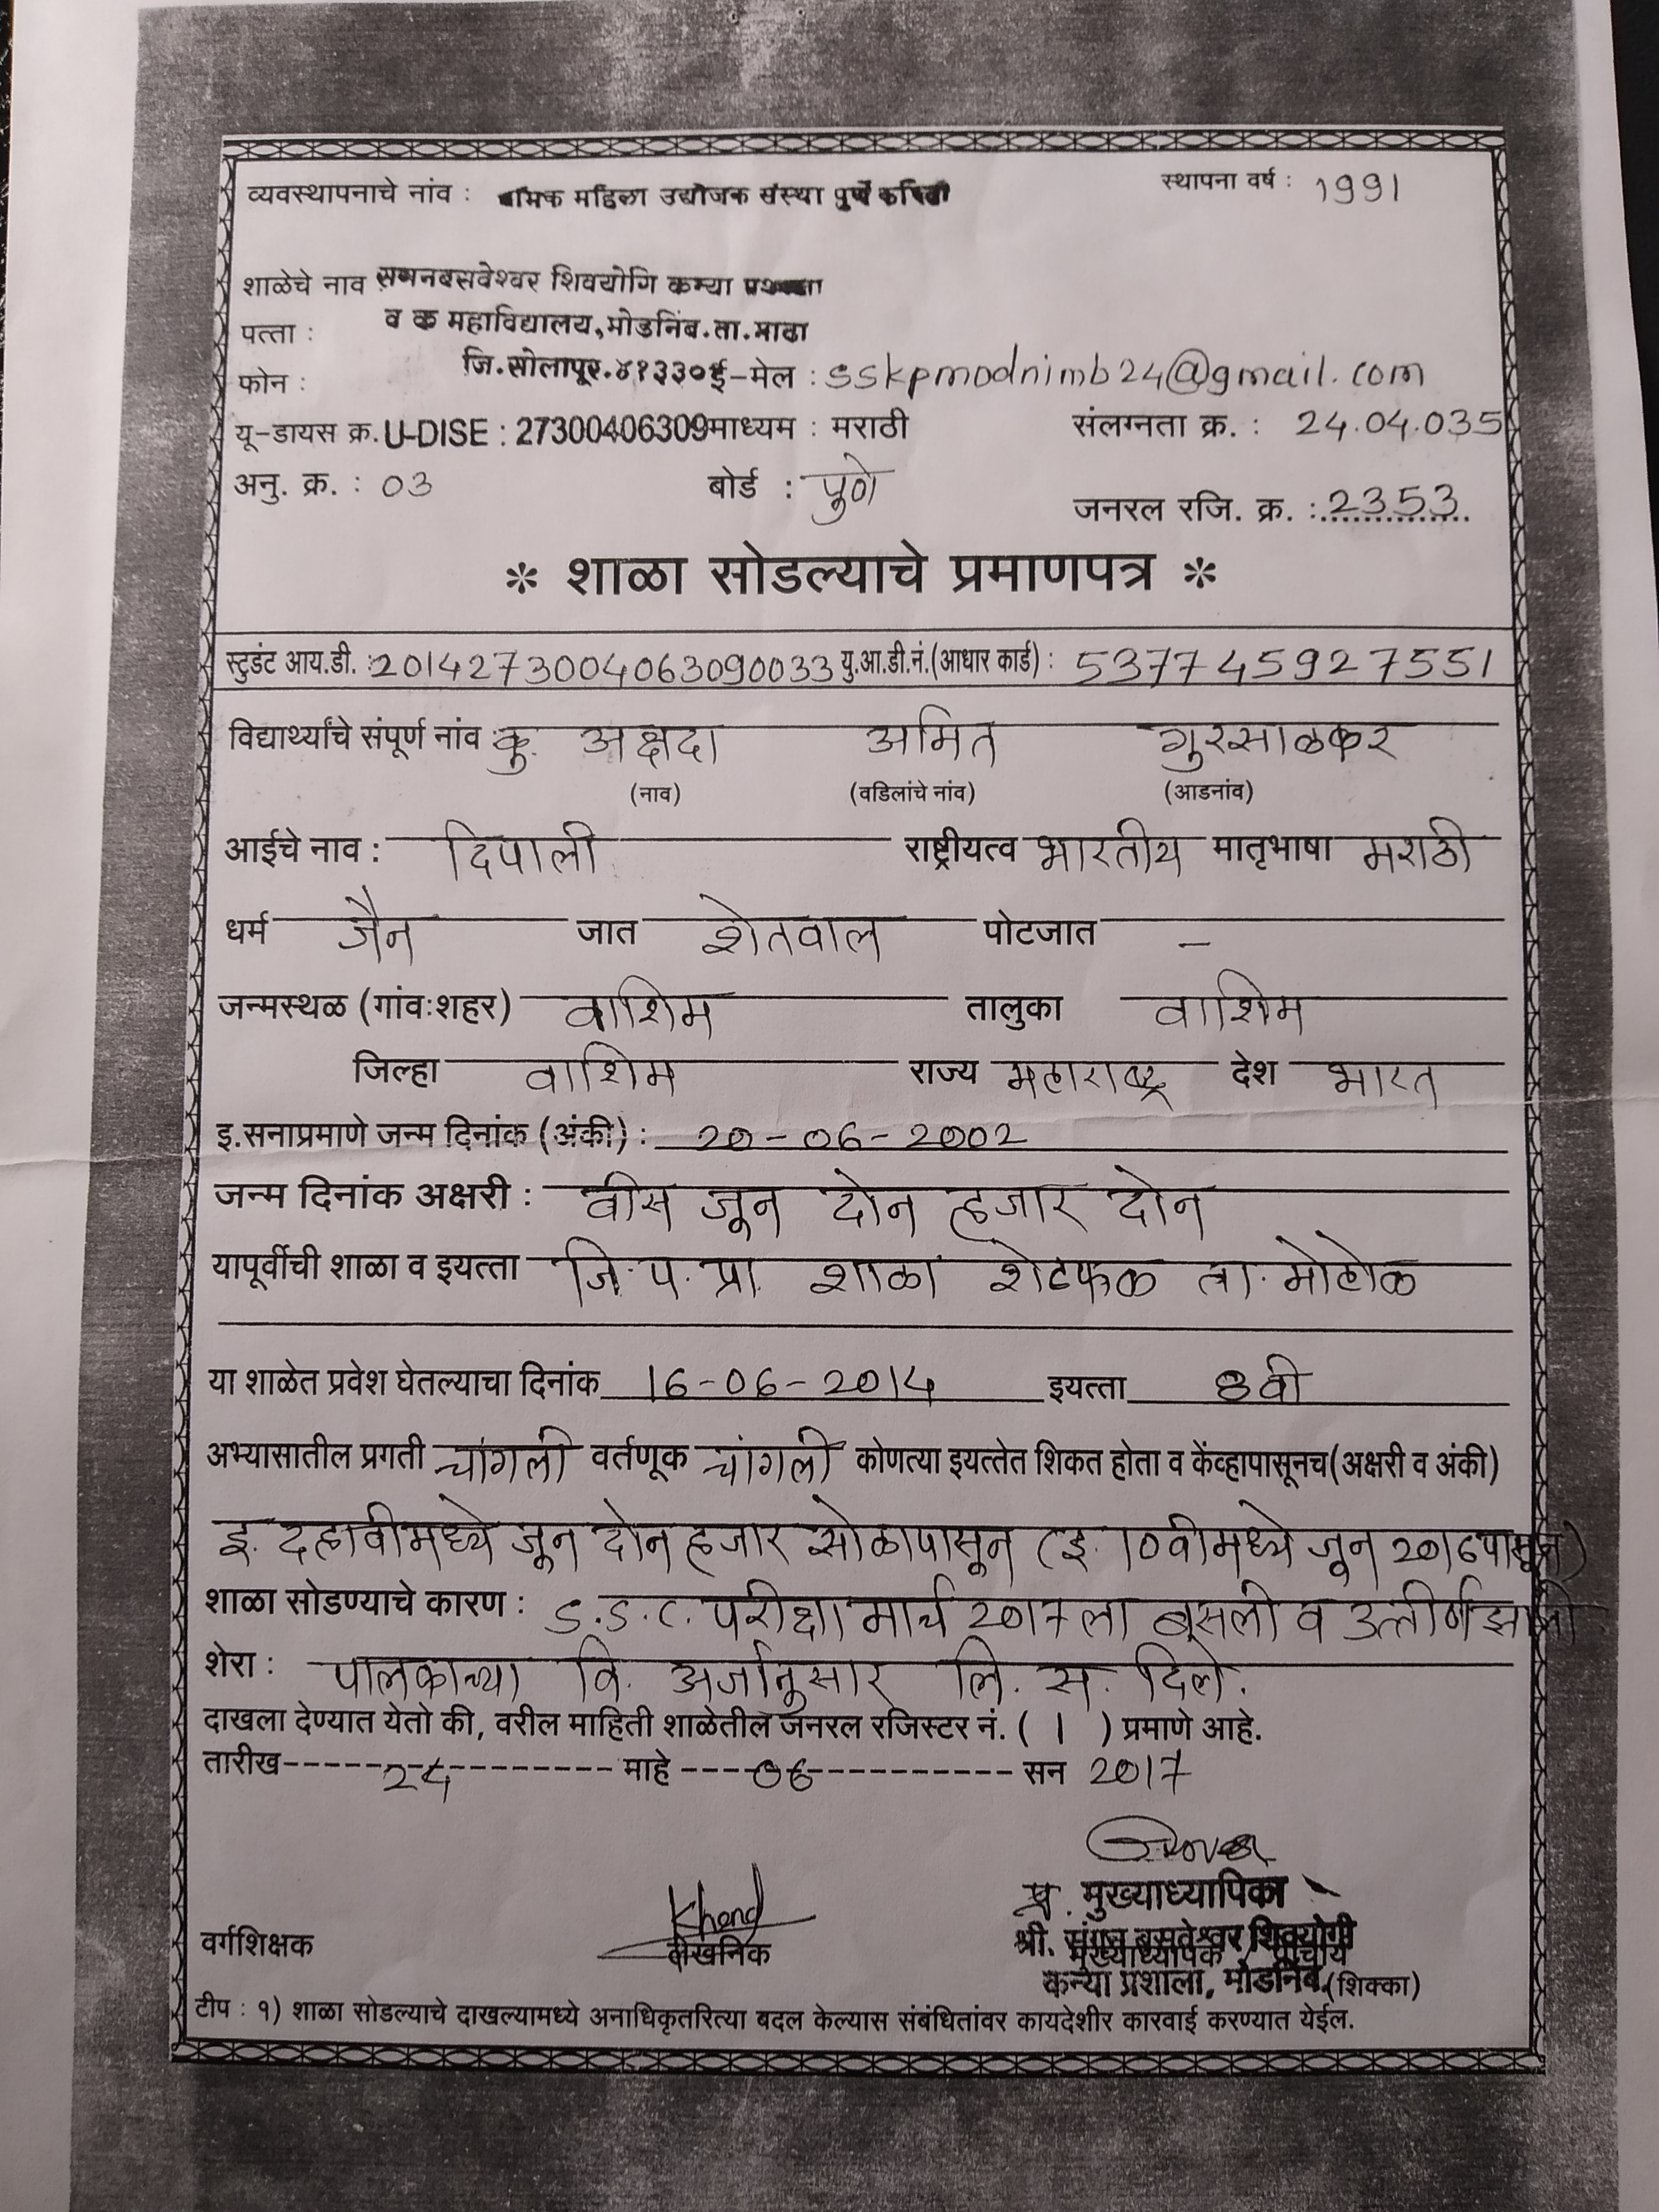 व्यवस्थापनाचे नांव : महिला उद्योजक संस्था पुणे
स्थापना वर्ष : 1991
शाळेचे नाव शिवयोगि कन्या
पत्ता : व क महाविद्यालय,मोडनिंब.ता.माढा
फोन : जि.सोलापूर.४१३३०१ ई-मेल : sskpmodnimb24@gmail.com
यू-डायस क्र. U-DISE : 27300406309 माध्यम : मराठी संलग्नता क्र. : 24.04.035
अनु. क्र. : 03 बोर्ड : पुणे जनरल रजि. क्र. : 2353
* शाळा सोडल्याचे प्रमाणपत्र *
स्टुडंट आय.डी. : 2014273004063090033 यु.आ.डी.नं.(आधार कार्ड) : 537745927551
विद्यार्थ्यांचे संपूर्ण नांव : कु. अक्षदा अमित गुरसाळकर
(नाव) (वडिलांचे नांव) (आडनांव)
आईचे नाव : दिपाली राष्ट्रीयत्व भारतीय मातृभाषा मराठी
धर्म जैन जात शेतवाल पोटजात –
जन्मस्थळ (गांव:शहर) वाशिम तालुका वाशिम
जिल्हा वाशिम राज्य महाराष्ट्र देश भारत
इ.सनाप्रमाणे जन्म दिनांक (अंकी) : 20-06-2002
जन्म दिनांक अक्षरी : वीस जून दोन हजार दोन
यापूर्वीची शाळा व इयत्ता जि.प.प्रा. शाळा शेटफळ ता. मोहोळ
या शाळेत प्रवेश घेतल्याचा दिनांक 16-06-2014 इयत्ता 8वी
अभ्यासातील प्रगती चांगली वर्तणूक चांगली कोणत्या इयत्तेत शिकत होता व केंव्हापासूनच(अक्षरी व अंकी)
इ. दहावीमध्ये जून दोन हजार सोळापासून (इ. 10वीमध्ये जून 2016पासून)
शाळा सोडण्याचे कारण : S.S.C. परीक्षा मार्च 2017 ला बसली व उत्तीर्ण झाली
शेरा : पालकाच्या वि. अर्जानुसार लि. स. दिले.
दाखला देण्यात येतो की, वरील माहिती शाळेतील जनरल रजिस्टर नं. ( 1 ) प्रमाणे आहे.
तारीख 24 माहे 06 सन 2017
प्र. मुख्याध्यापिका
वर्गशिक्षक Khand लेखनिक श्री. संगन बसवेश्वर शिवयोगी
मुख्याध्यापक प्राचार्य
कन्या प्रशाला, मोडनिंब. (शिक्का)
टीप : १) शाळा सोडल्याचे दाखल्यामध्ये अनाधिकृतरित्या बदल केल्यास संबंधितांवर कायदेशीर कारवाई करण्यात येईल.